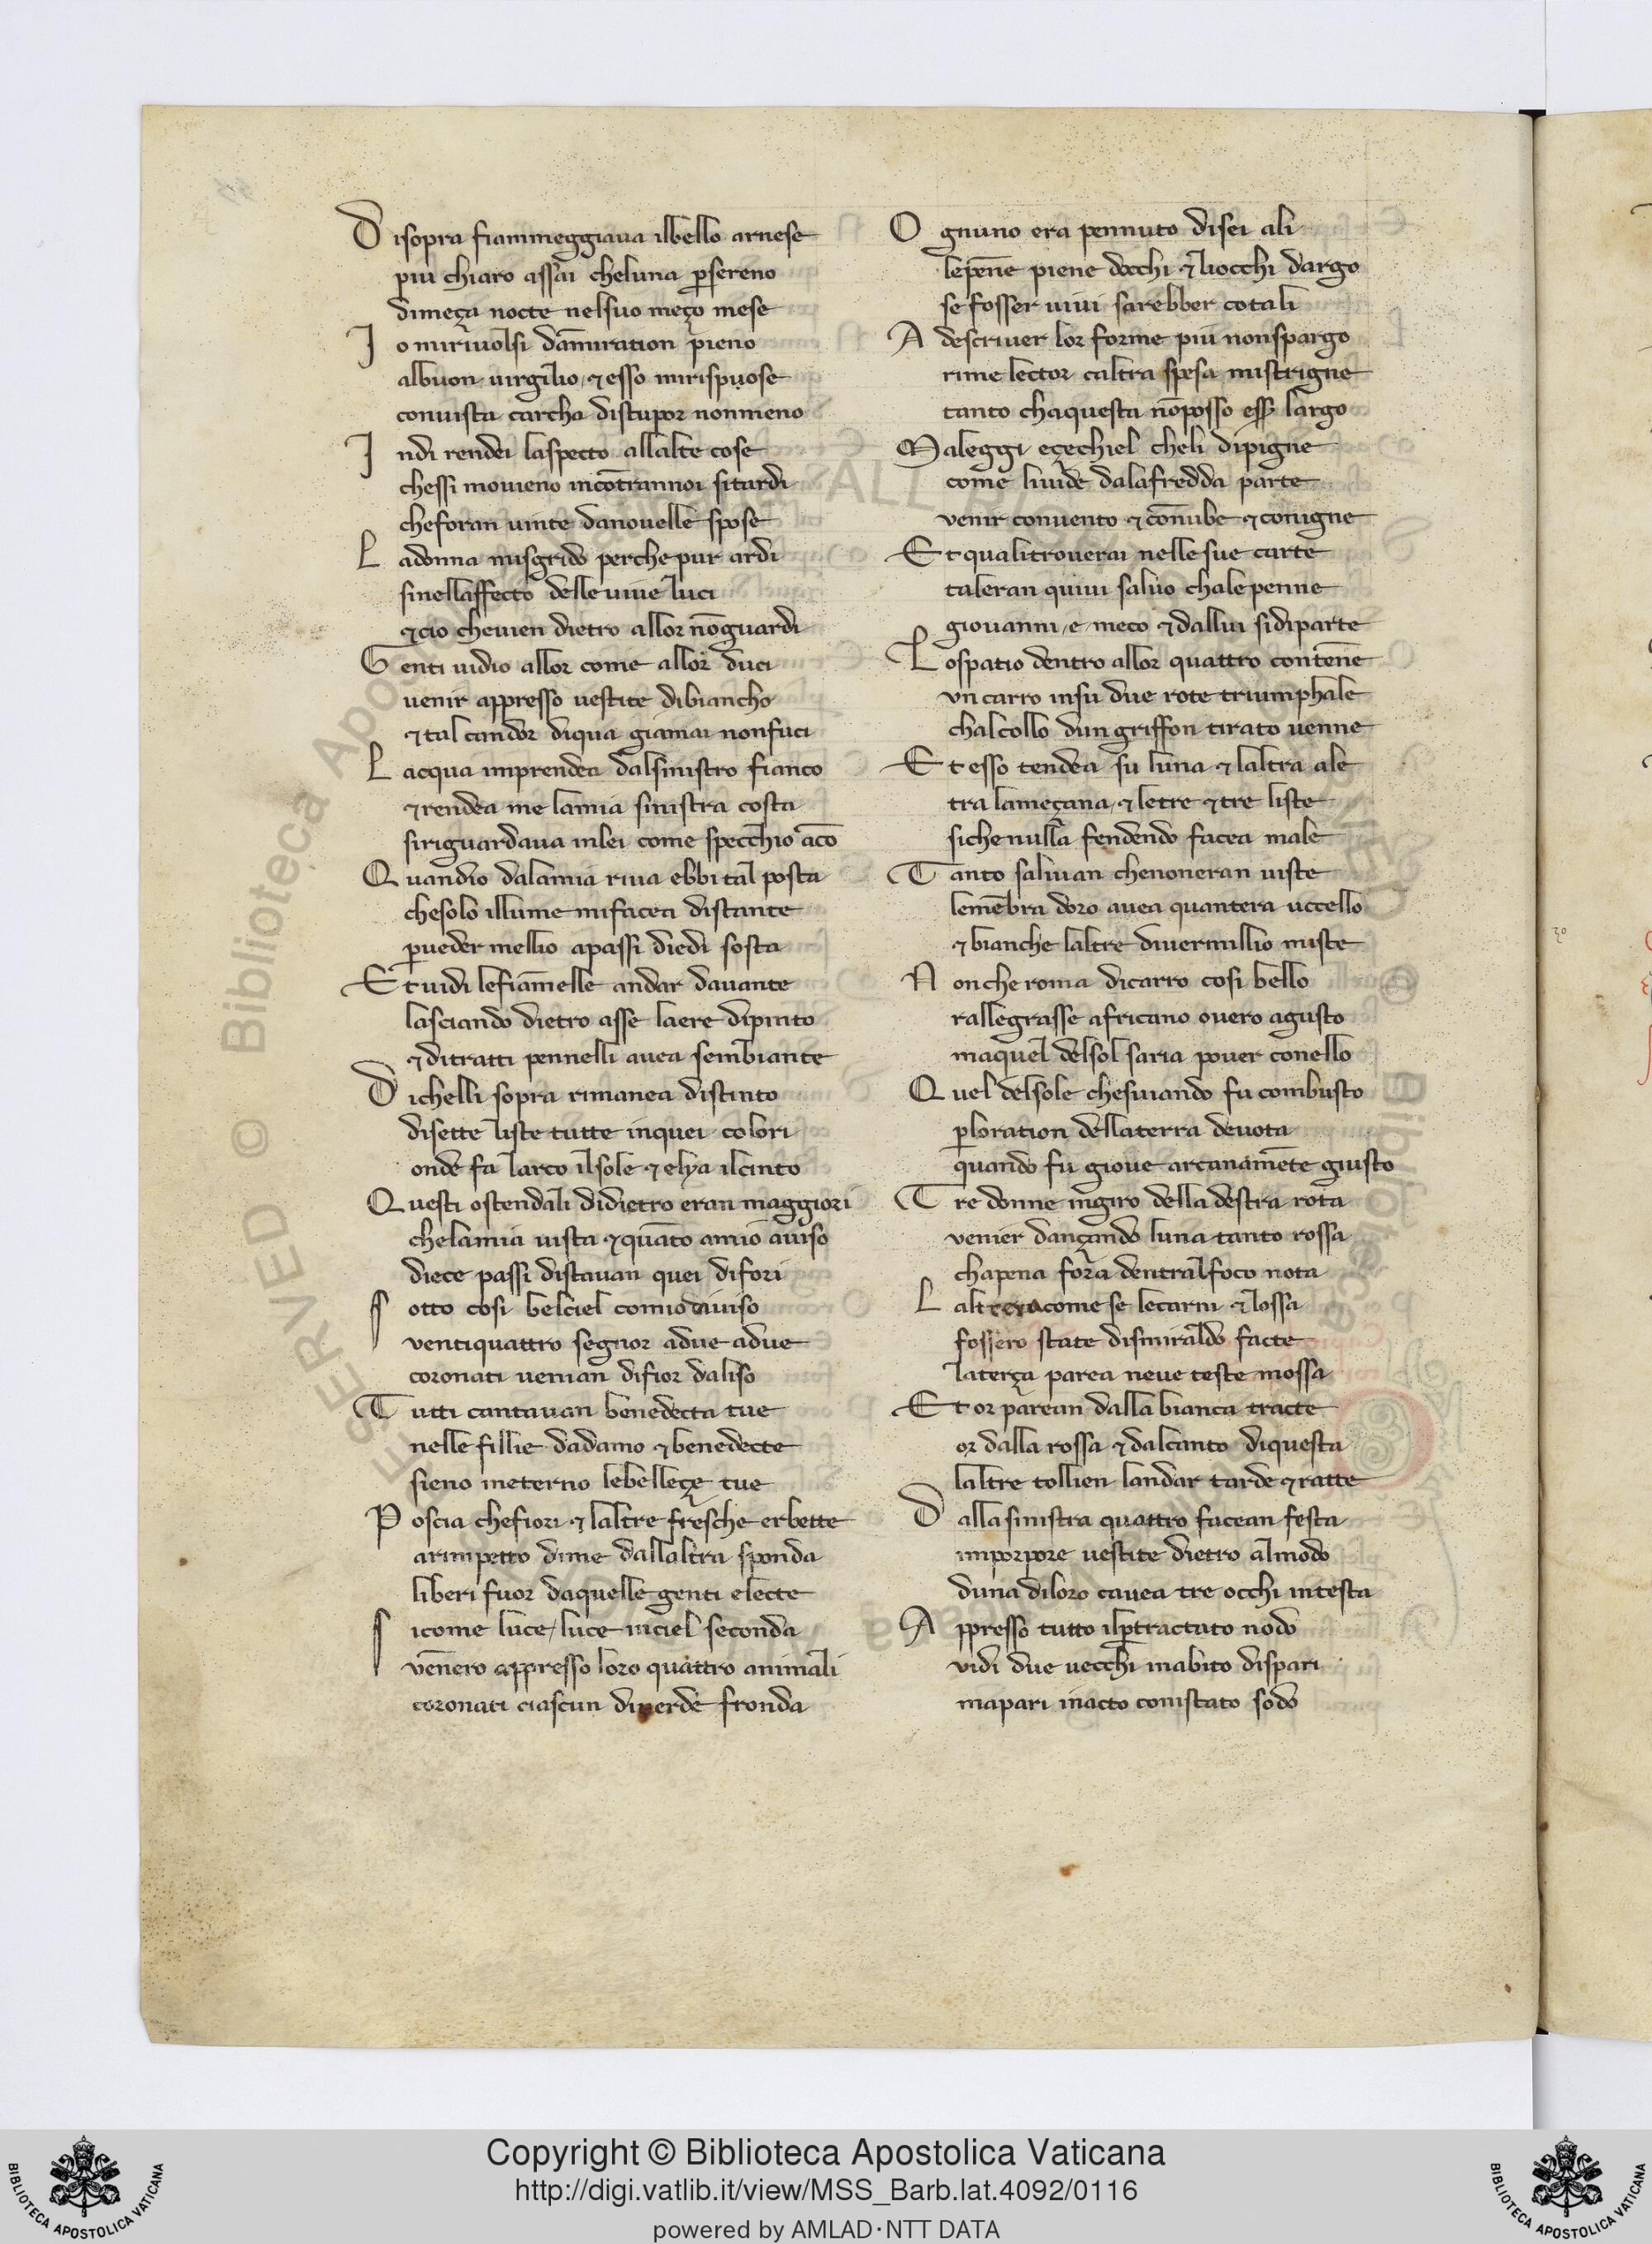 D isopra fiammeggiaua ilbello arnese
piu chiaro assai cheluna ꝑsereno
dimeça nocte nelsuo meço mese
I o miriuolsi dam̄iration pieno
albuon uirgilio ⁊ esso mirispuose
conuista carcha distupor nonmeno
I ndi rendei laspecto allalte cose
chessi mouieno incōtrannoi sitardi
cheforan uinte danouelle spose
L adonna misgrido perche pur ardi
sinellaffecto delleuiue luci
⁊cio cheuien dietro allor nōguardi
G enti uidio allor come allor duci
uenir appresso uestite dibiancho
⁊tal candor diqua giamai nonfuci
L acqua imprendea dalsinistro fianco
⁊rendea me lamia sinistra costa
siriguardaua inlei come specchio acō
Q uandio dalamia riua ebbi tal posta
chesolo ilfiume mifacea distante
ꝑueder mellio apassi diedi sosta
E tuidi lefiam̄elle andar dauante
lasciando dietro asse laere dipinto
⁊ditratti pennelli auea sembiante
D ichelli sopra rimanea distinto
disette liste tutte inquei colori
onde fa larco ilsole ⁊ elya ilcinto
Q uesti ostendali didietro eran maggiori
chelamia uista ⁊quāto amio auiso
diece passi distauan quei difori
S otto cosi belciel comio diuiso
ventiquattro segnor adue adue
coronati uenian difior daliso
T utti cantauan benedecta tue
nelle fillie dadamo ⁊ benedecte
sieno ineterno lebelleçe tue
P oscia chefiori ⁊ laltre fresche erbette
arimpetto dime dallaltra sponda
liberi fuor daquelle genti electe
S icome luce luce inciel seconda
vennero appresso loro quattro animali
coronati ciascun diuerde fronda
O gnuno era pennuto disei ali
lepēne piene docchi ⁊liocchi dargo
se fosser uiui sarebber cotali
A descriuer lor forme piu nonspargo
rime lector caltra spesa mistrigne
tanto chaquesta nōposso ess̄ largo
M aleggi eçechiel cheli dipigne
come liuide dalafredda parte
venir conuento ⁊ cōnube ⁊ conigne
E t qualitrouerai nellesue carte
taleran quiui saluo chalepenne
giouanni e meco ⁊dallui sidiparte
L ospatio dentro allor quattro contēne
vn carro insu due rote triumphale
chalcollo dun griffon tirato uenne
E t esso tendea su luna ⁊ laltra ale
tra lameçana ⁊ letre ⁊ tre liste
siche nulla fendendo facea male
T anto saliuan chenoneran uiste
lemēbra doro auea quantera uccello
⁊ bianche laltre diuermillio miste
N on che roma dicarro cosi bello
rallegrasse africano ouero agusto
maquel delsol saria pouer conello
Q uel delsole chesuiando fu combusto
ꝑloration dellaterra deuota
quando fu gioue arcanamēte giusto
T re donne ingiro della destra rota
venier dançando luna tanto rossa
chapena fora dentralfoco nota
L altreracome se lecarni ⁊lossa
fossero state dismiraldo facte
laterça parea neue teste mossa
E t or parean dalla bianca tracte
or dalla rossa ⁊ dalcanto diquesta
laltre tollien landar tarde ⁊ratte
D allasinistra quattro facean festa
imporpore uestite dietro almodo
duna diloro cauea tre occhi intesta
A ppresso tutto ilꝑtractato nodo
vidi due uecchi inabito dispari
mapari inacto conistato sodo
Copyright © Biblioteca Apostolica Vaticana
http://digi.vatlib.it/view/MSS_Barb.lat.4092/0116
powered by AMLAD·NTT DATA
BIBLIOTECA APOSTOLICA VATICANA
BIBLIOTECA APOSTOLICA VATICANA